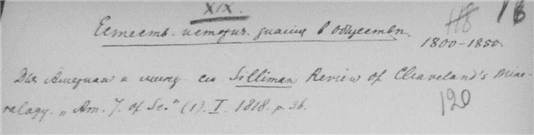 XIX.
118
Естеств. истори. знание в обществе.
1800-1850.
Для Америки и минер. см Silliman Review of Cleaveland's Mine-
ralogy. „Am. J. of Sc." (1). I. 1818. p. 36.
120